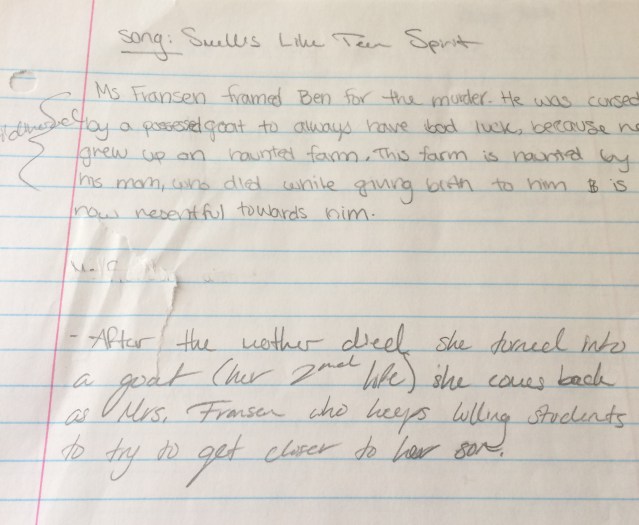 song: Smells Like Teen Spirit
Ms Fransen framed Ben for the murder. He was cursed
by a possesed goat to always have bad luck, because he
grew up on haunted farm. This farm is haunted by
his mom, who died while giving birth to him & is
now resentful towards him.
- After the mother died she turned into
a goat (her 2nd life) she comes back
as Mrs. Fransen who keeps killing students
to try to get closer to her son.